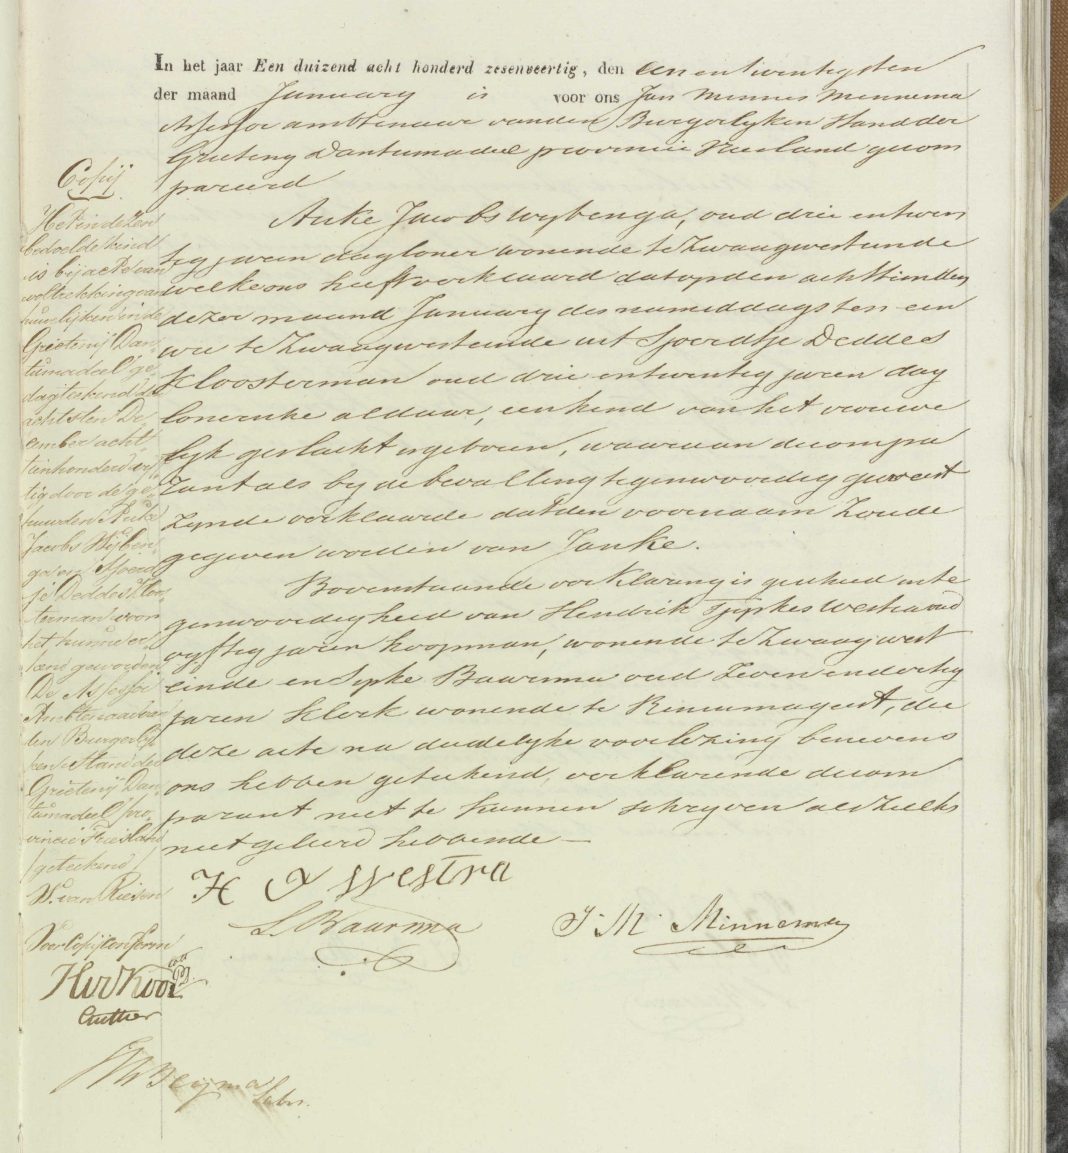 In het jaar Een duizend acht honderd zesenveertig, den een en twentigsten
der maand January is voor ons Jan Minnes Minnema
Assessor ambtenaar van den Burgerlyken Stand der
Grieteny Dantumadeel provincie Vriesland gecom
pareerd
Auke Jacobs Wybenga, oud drie en twen
tig jaren dagloner wonende te Zwaagwesteinde
welke ons heeft verklaard dat op den achttienden
dezer maand January des namiddags ten een
ure te Zwaagwesteinde uit Sjoerdtje Deddes
Kloosterman oud drie en twentig jaren dag
lonerske aldaar, een kind van het vrouwe
lyk geslacht is geboren, waarvan de compa
rant als by de bevalling tegenwoordig geweest
zynde verklaarde dat den voornaam zoude
gegeven worden van Janke.
Bovenstaande verklaring is geschied in te
genwoordigheid van Hendrik Tjipkes Westra oud
vyftig jaren koopman, wonende te Zwaagwest
einde en Sipke Baarma oud zeven en dertig
jaren klerk wonende te Rinsumageest, die
deze acte na duidelyke voorlezing benevens
ons hebben geteekend, verklarende de com
parant niet te kunnen schryven als zulks
niet geleerd hebbende
H T Westra
S. Baarma
J. M. Minnema
Copij
Het in dezen
bedoelde kind
is bij acte van
voltrekking van
huwelijken in de
Grietenij Dan-
tumadeel ge-
dagteekend den
achtsten De-
cember acht
tienhonderd
tig door de ge-
huwden Auke
Jacobs Wijben-
ga en Sjoerd
je Deddes Kloos-
terman voor
het hunne er-
kend geworden
De Assessor
Ambtenaar van
den Burgerlij-
ken Stand der
Grietenij Dan-
tumadeel pro-
vincie Friesland
/geteekend/
W. van Riesen
Voor Copij conform
Griffier